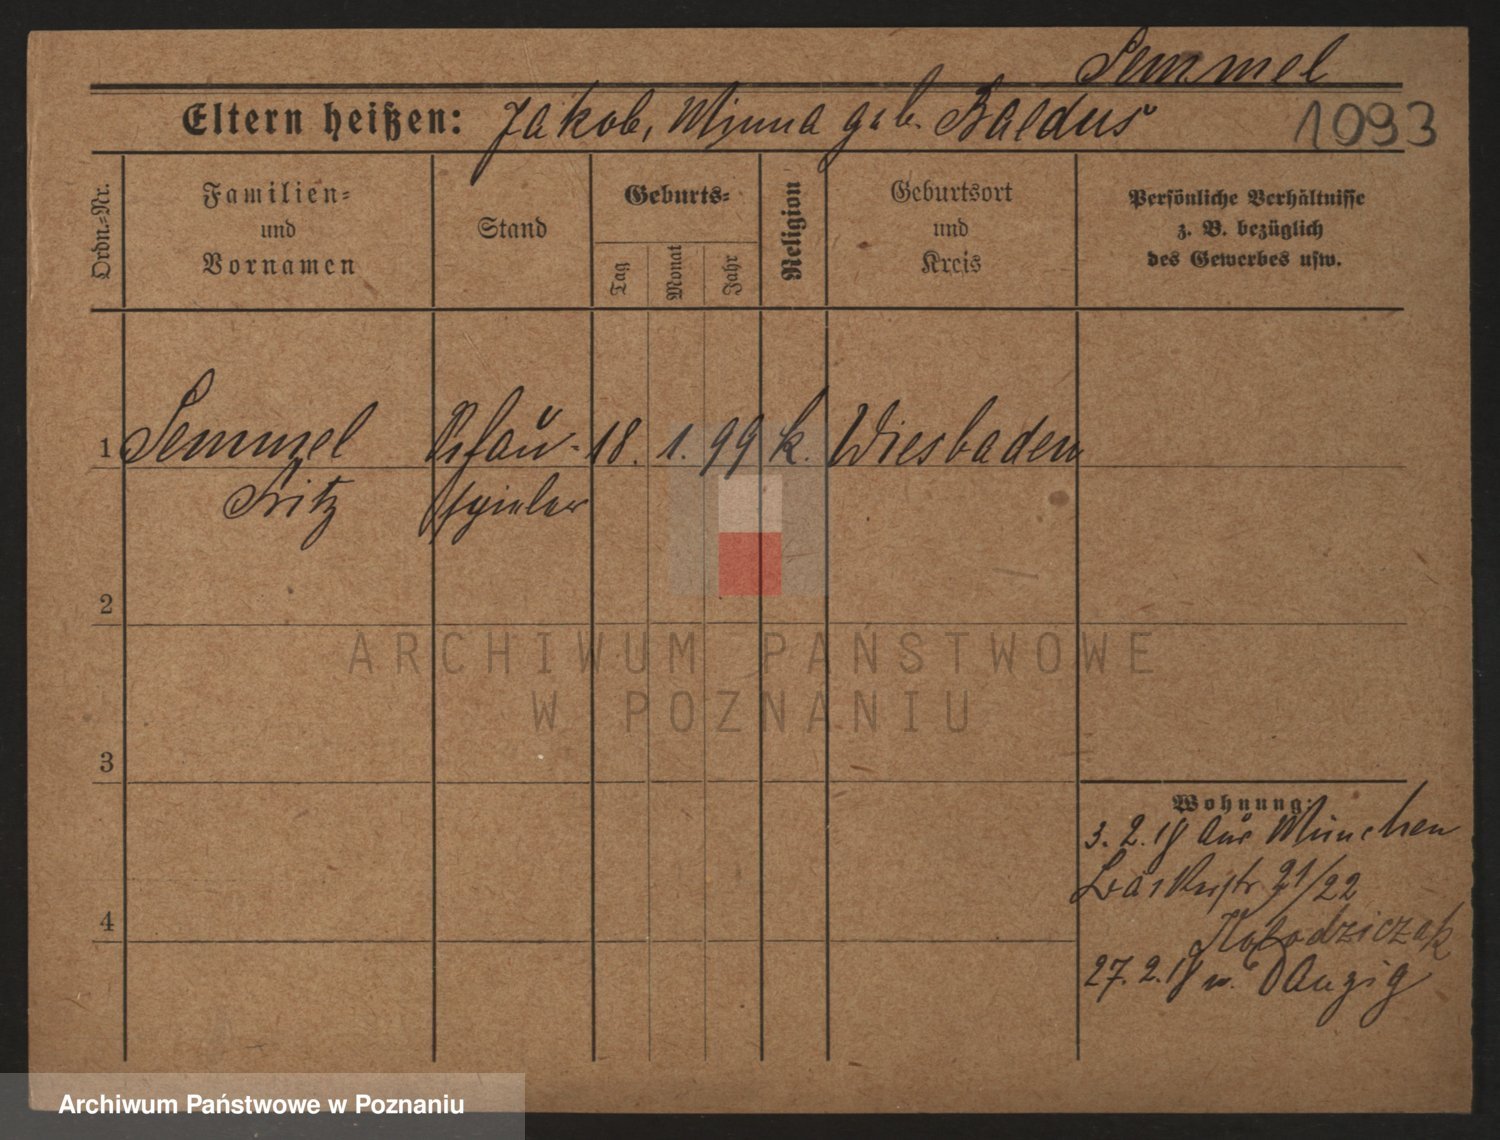 Semmel
Eltern heißen: Jakob, Minna geb. Baldus
1093
Ordn.=Nr.
Familien=
und
Vornamen
Stand
Geburts=
Tag
Monat
Jahr
Religion
Geburtsort
und
Kreis
Persönliche Verhältnisse
z. B. bezüglich
des Gewerbes usw.
1 Semmel Schau- 18. 1. 99 k. Wiesbaden
Fritz spieler
2
3
4
Wohnung:
3. 2. 18 aus München
21/22
Kolodziczak
27. 2. 18 n. Danzig
ARCHIWUM PAŃSTWOWE
W POZNANIU
Archiwum Państwowe w Poznaniu